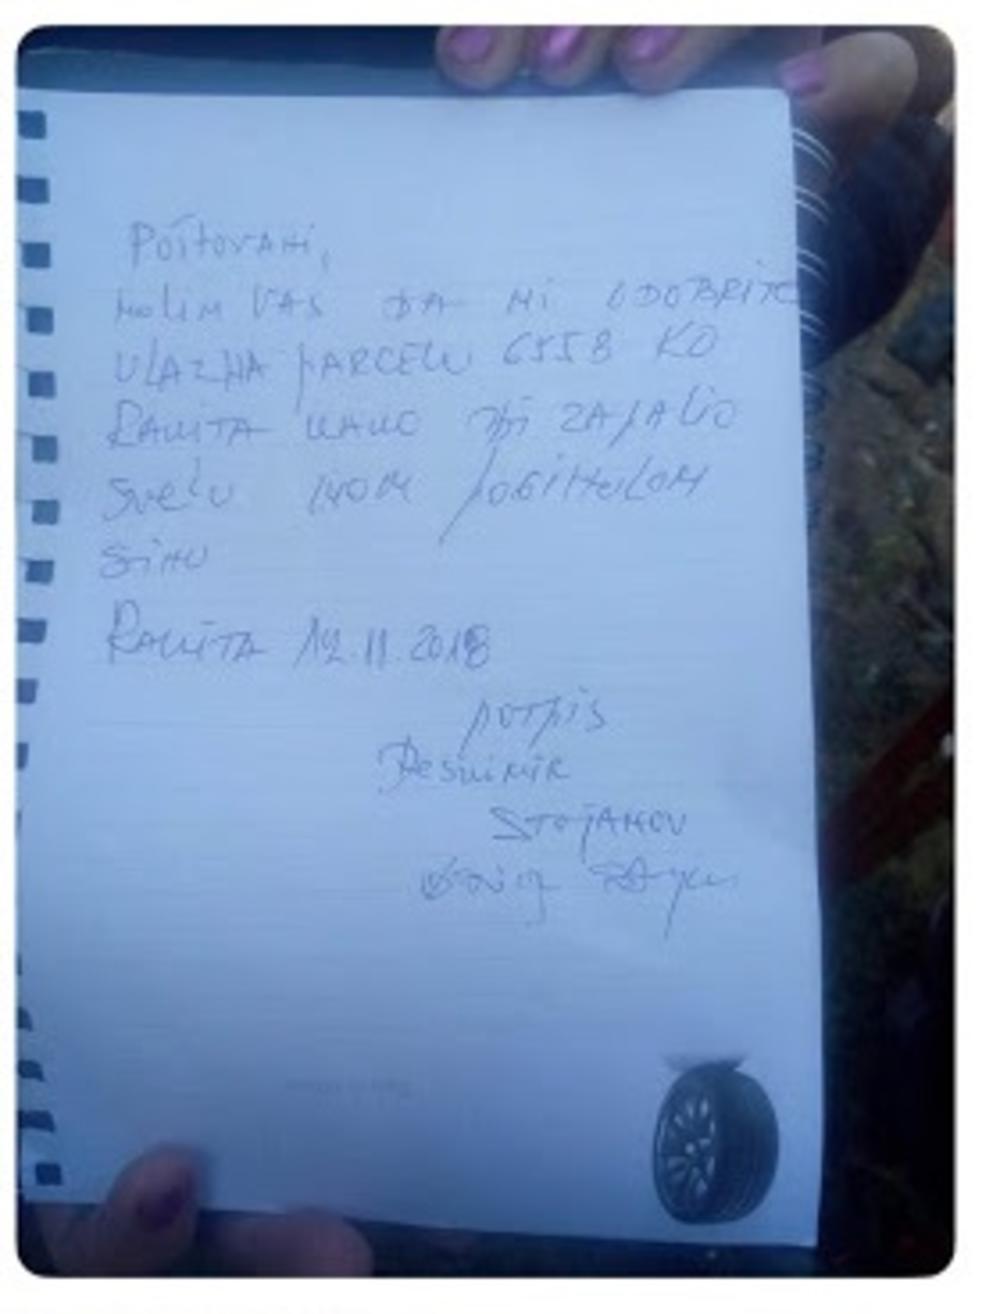 Poštovani,
Molim VAS DA Mi ODOBRITE
ULAZ NA PARCELU 6558 KO
RAKITA KAKO Bi ZAPALiO
SVEĆU SVOM POGiNULOM
SiNU
RAKiTA 12.11.2018
potpis
Desimir
STOjANOV